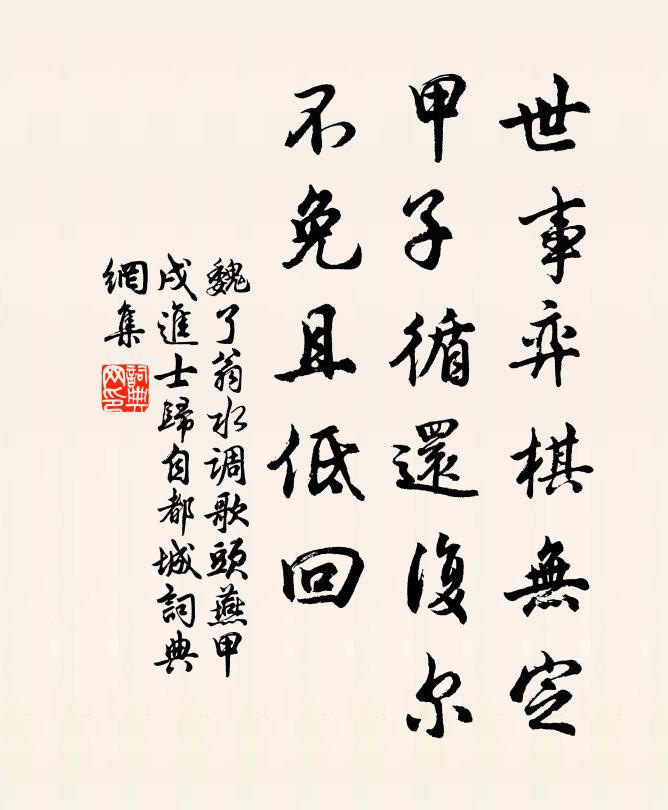 世事弈棋無定
甲子循還復尔
不免且低回
魏了翁水调歌頭燕甲
戌進士歸自都城詞典
網集
詞典
网印